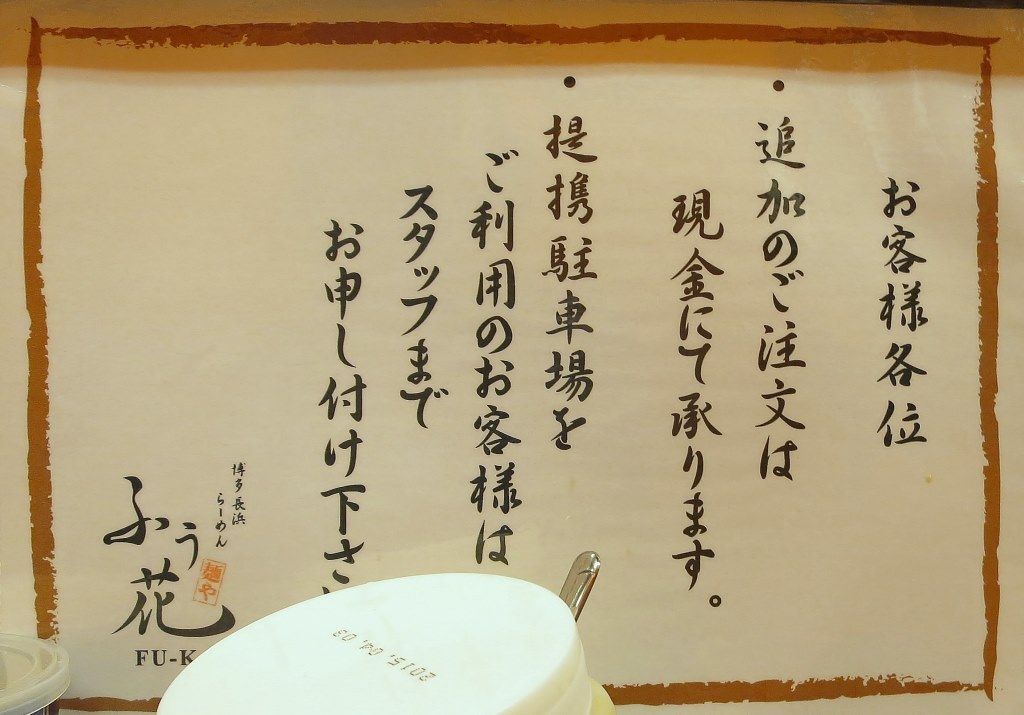 お客様各位
・追加のご注文は
現金にて承ります。
・提携駐車場を
ご利用のお客様は
スタッフまで
お申し付け下さ
博多長浜
らーめん
麺や
ふう花
FU-K
2015.04.03